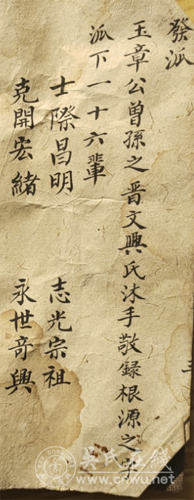 發派
玉章公曾孫之晋文興氏沐手敬録根源之
派下一十六輩
士際昌明 志光宗祖
克開宏緒 永世奇興
吴氏
www.cnwu.net